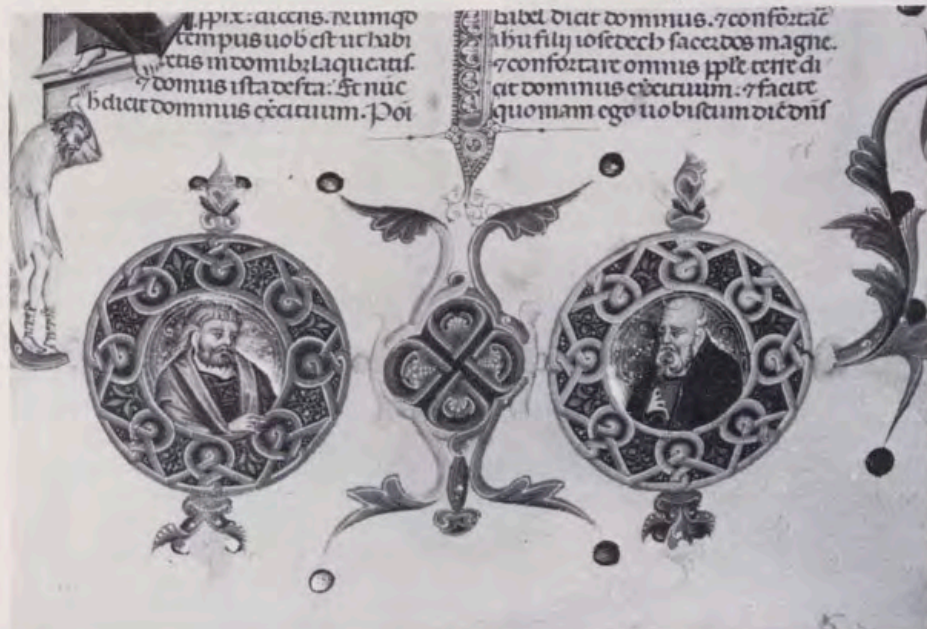 pphe: dicens. Numqd
tempus uob est ut habi
tetis in domibꝫ laqueatis.
⁊ domus ista desta: Et nūc
h dicit dominus exercituum. Poi
babel dicit dominus. ⁊ confortaē
ihu filij iosedech sacerdos magne.
⁊ confortare omnis pple terre di
cit dominus exercituum. ⁊ facite
quoniam ego uobiscum dic dn̄s